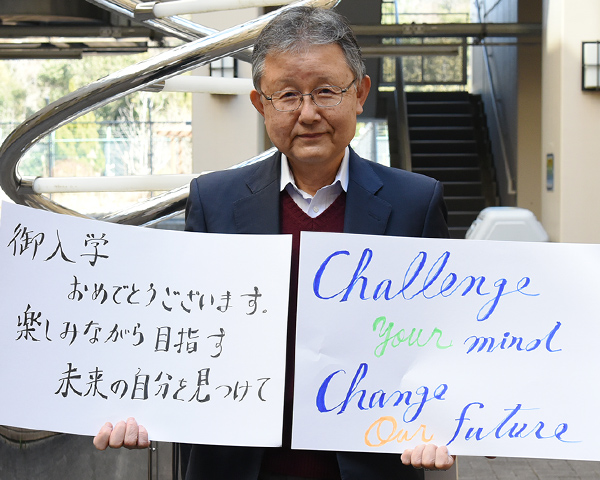 御入学
おめでとうございます。
楽しみながら目指す
未来の自分を見つけて
Challenge
your mind
Change
Our future